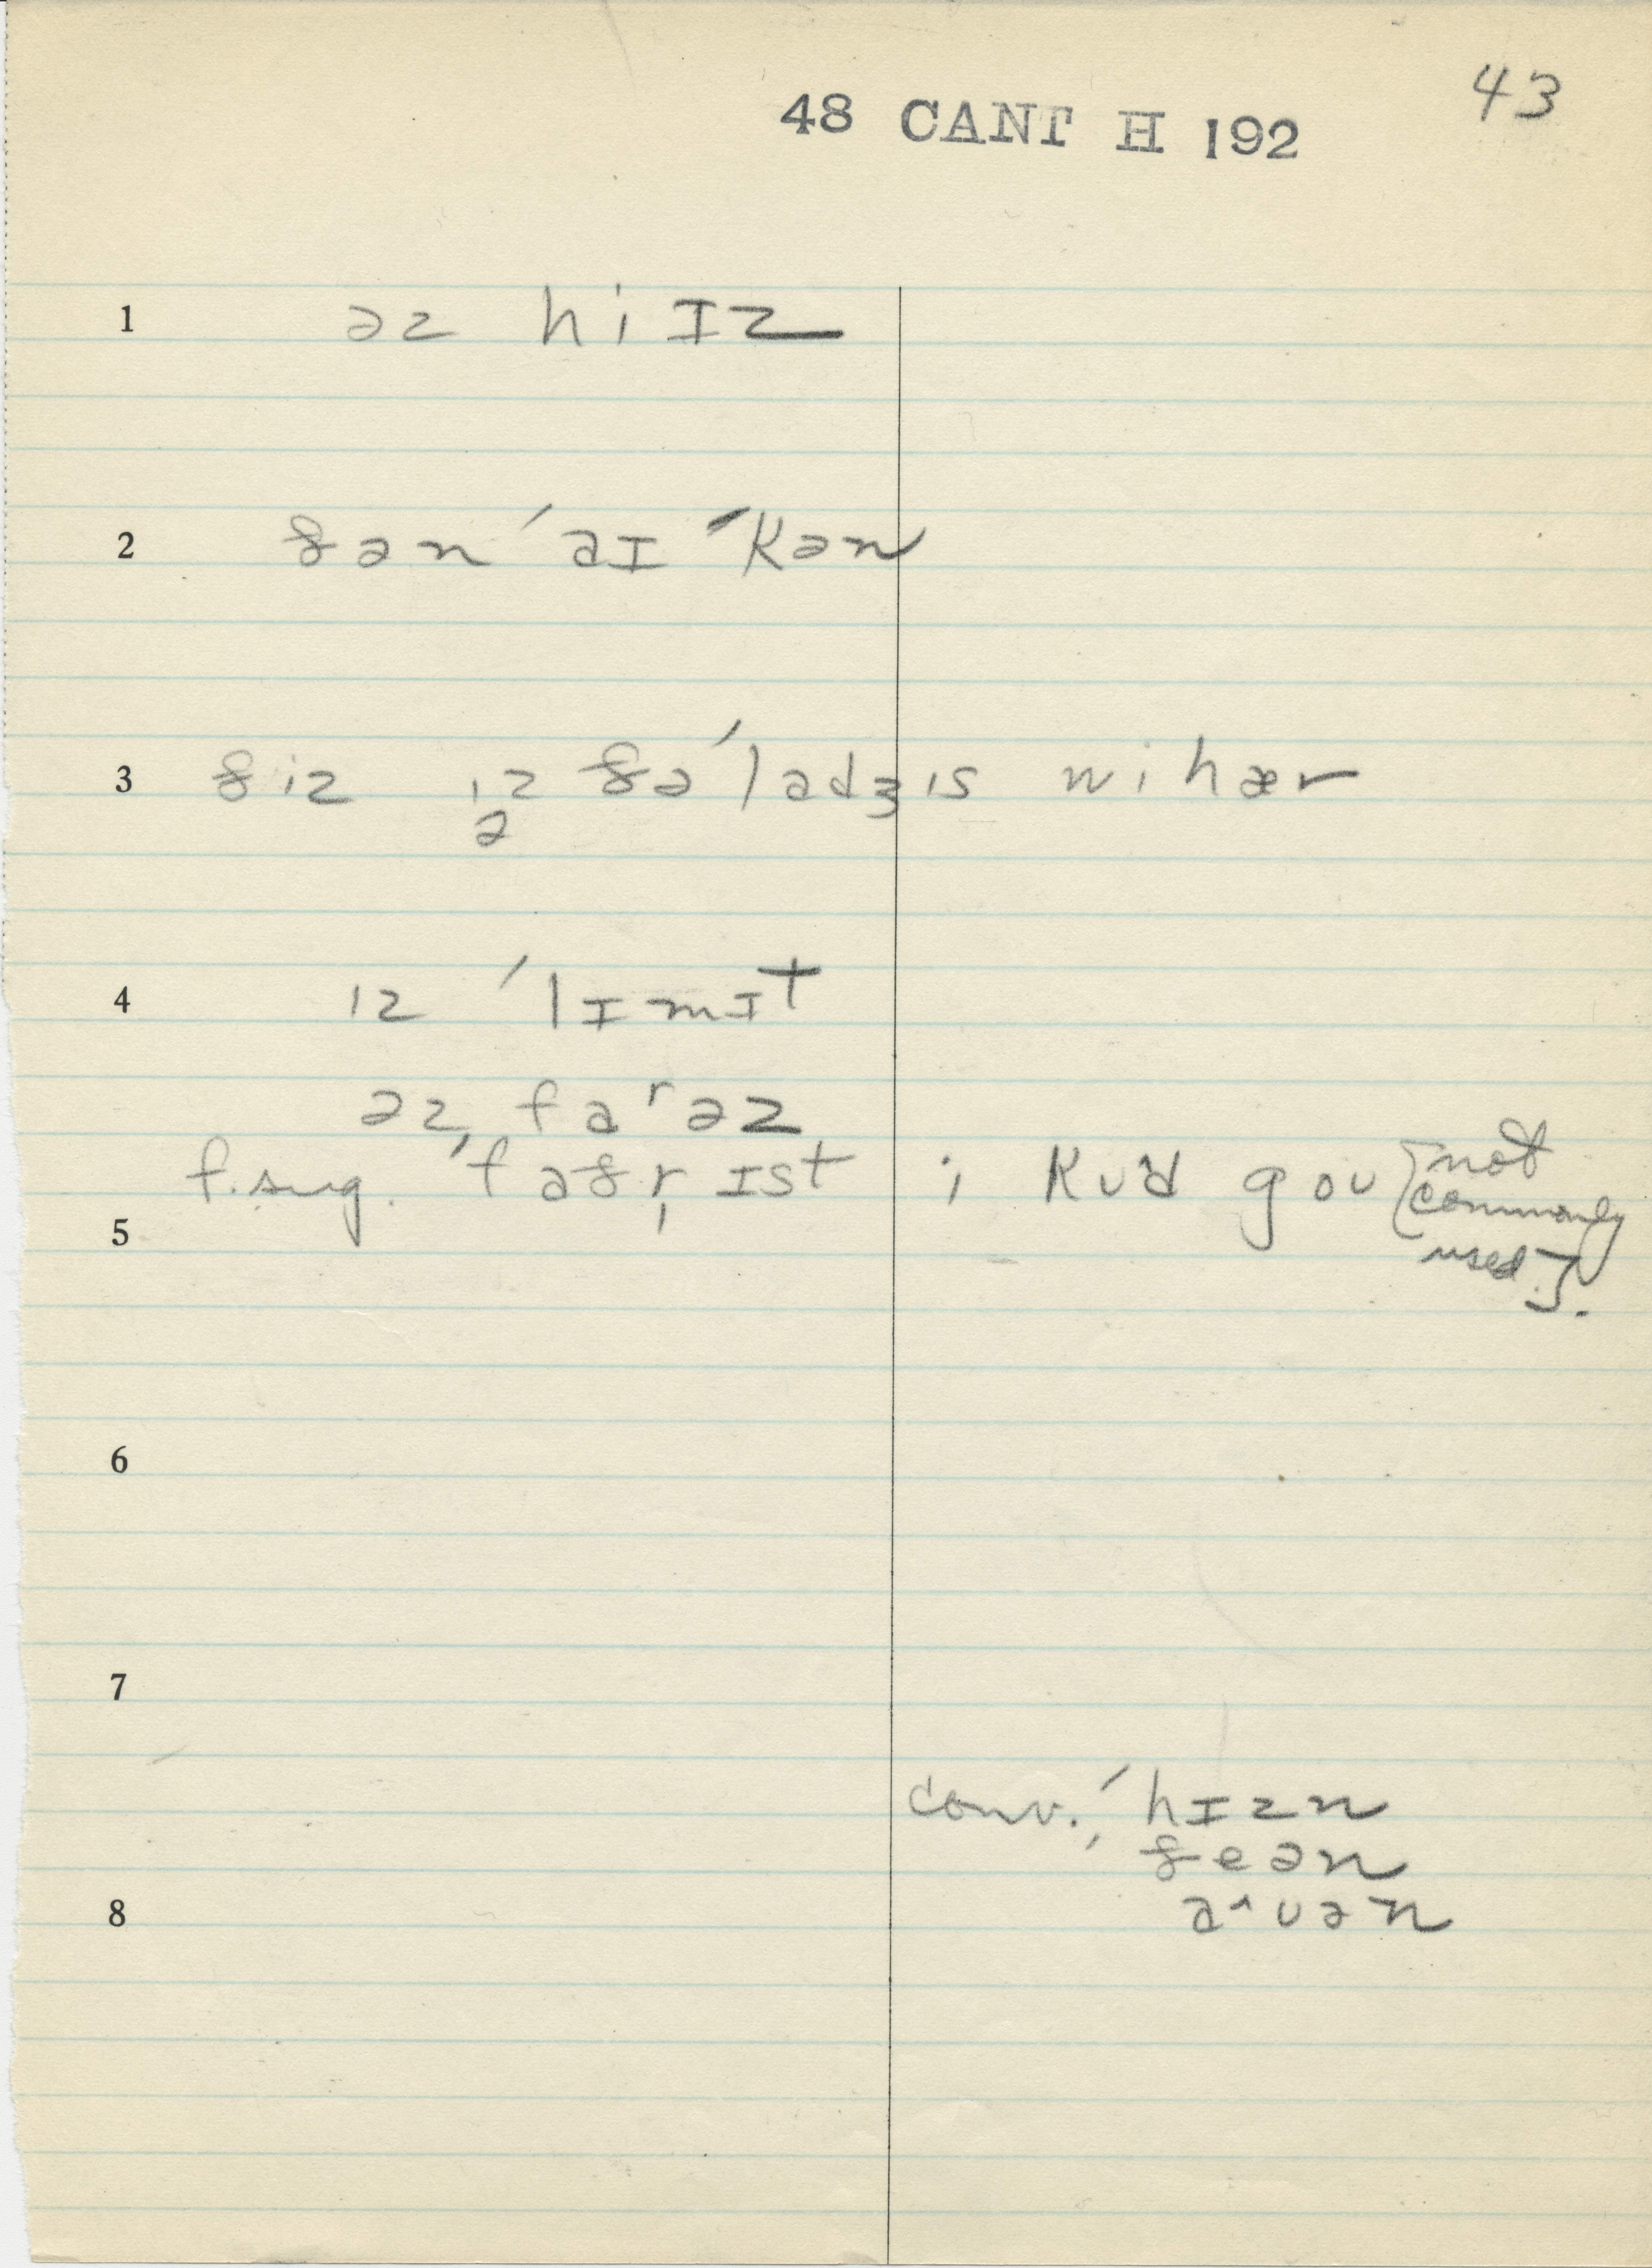 43
48 CANT H 192
1 əz hi ɪz
2 ðən ˈaɪ ˈkən
3 ðiz ɪz ðə ˈladʒɪs wi hær
ə
4 ɪz ˈlɪmɪt
əz fa ʳ əz
f. sug. ˈfaðr̩ ɪst ; kud gou [not
commonly
used].
5
6
7
conv., ˈhɪzn
ðeən
8 aˑuən